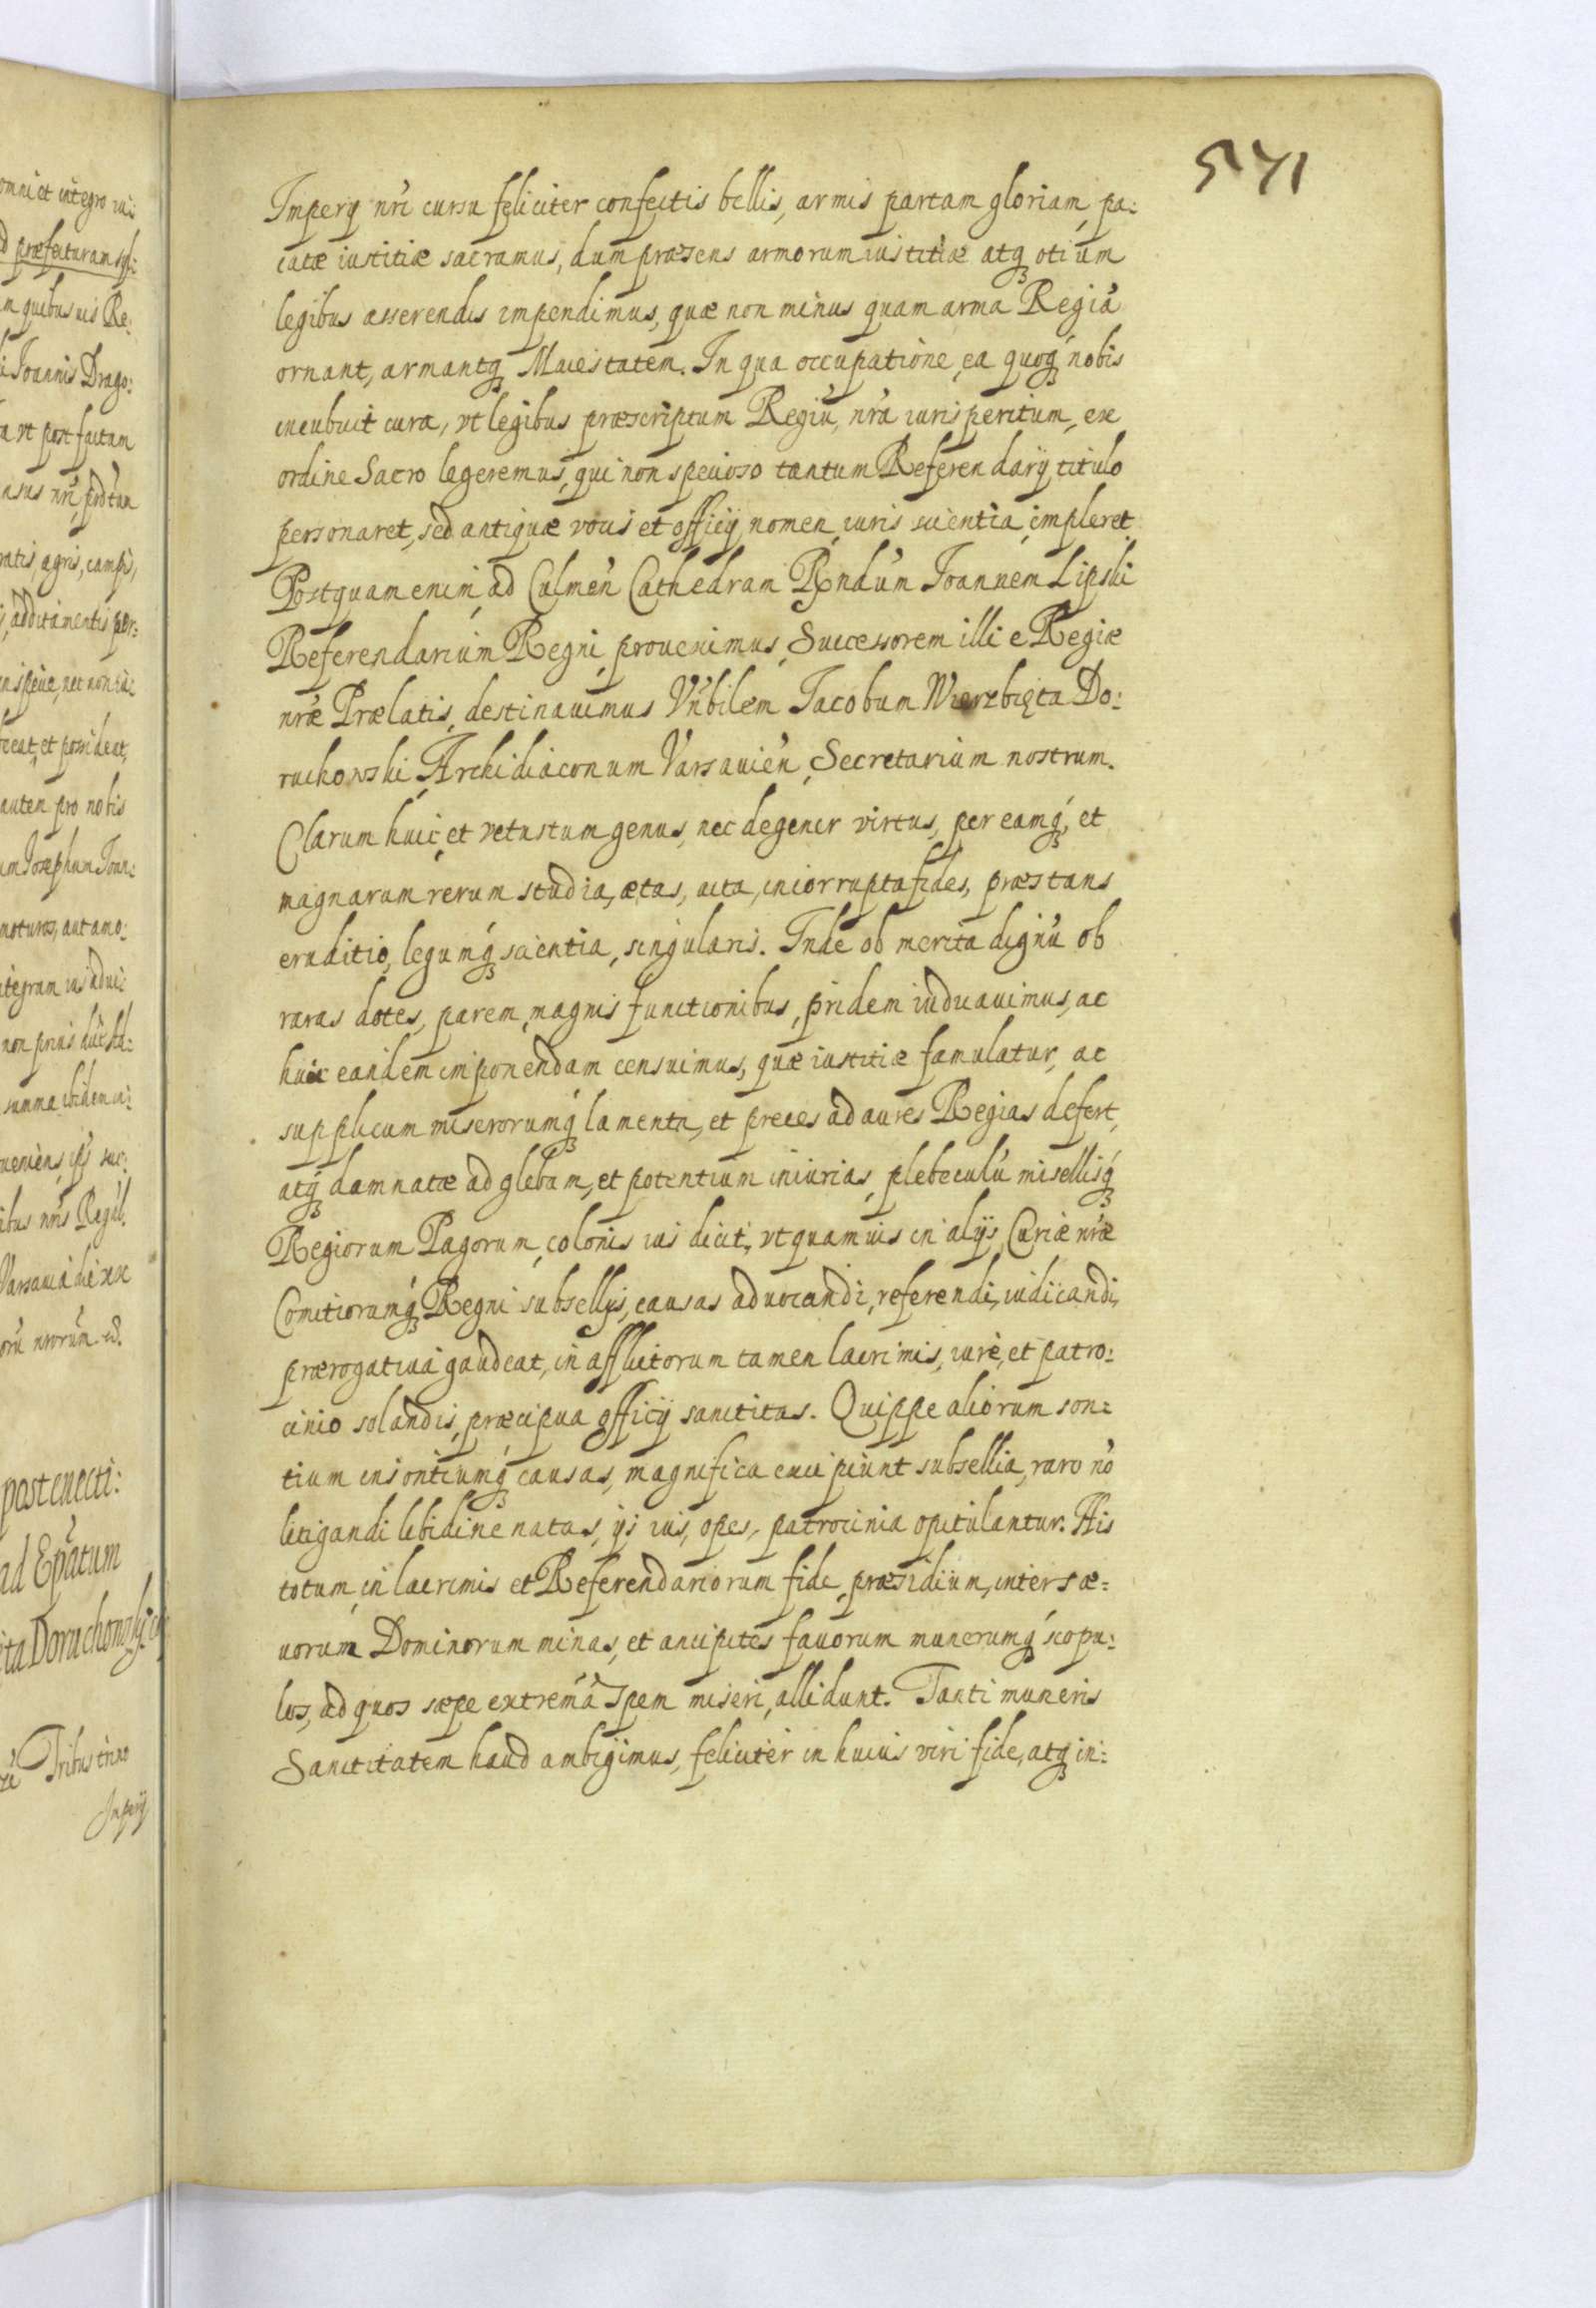 571
Imperÿ nr̃i cursu feliciter confectis bellis, armis partam gloriam, pa:
catæ iustitiæ sacramus, dum præsens armorum iustitiæ atq̃ otium
legibus asserendis impendimus, quæ non minus quam arma Regiã
ornant, armantq̃ Maiestatem. In qua occupatione, ea quoq̃ nobis
incubuit cura, vt legibus præscriptum Regiũ, nr̃a iurisperitum, ex
ordine Sacro legeremus, qui non specioso tantum Referendarÿ titulo
personaret, sed antiquæ vocis et officÿ nomen, iuris scientia, impleret.
Postquam enim, ad Culmeñ Cathedram Rṇdũm Joannem Lipski
Referendarium Regni, prouenimus, Successorem illi e Regiæ
nr̃æ Prælatis, destinauimus Vñbilem Jacobum Wierzbięta Do:
ruchowski, Archidiaconum Varsauieñ, Secretarium nostrum.
Clarum huic, et vetustum genus, nec degener virtus, per eamq̃, et
magnarum rerum studia, ætas, acta, incorrupta fides, præstans
eruditio, legumq̃ scientia, singularis. Inde ob merita dignũ ob
raras dotes, parem, magnis functionibus, pridem iudicauimus, ac
huic eandem imponendam censuimus, quæ iustitiæ famulatur, ac
supplicum miserorumq̃ lamenta, et preces ad aures Regias defert,
atq̃ damnatæ ad glebam, et potentium iniurias, plebeculũ misellisq̃
Regiorum Pagorum, colonis ius dicit, vt quamuis in alÿs Curiæ nr̃æ
Comitiorumq̃ Regni subsellÿs, causas aduocandi, referendi, iudicandi,
prærogatiua gaudeat, in afflictorum tamen lacrimis, iure, et patro:
cinio solandis, præcipua officÿ sanctitas. Quippe aliorum son:
tium insontiumq̃ causas, magnifica excipiunt subsellia, raro nõ
litigandi libidine natas, ÿs ius, opes, patrocinia opitulantur. His
totum, in lacrimis et Referendariorum fide, præsidium, inter sæ:
uorum Dominorum minas, et ancipites fauorum munerumq̃ scopu:
los, ad quos sæpe extremã spem miseri, allidunt. Tanti muneris
Sanctitatem haud ambigimus, feliciter in huius viri fide, atq̃ in: